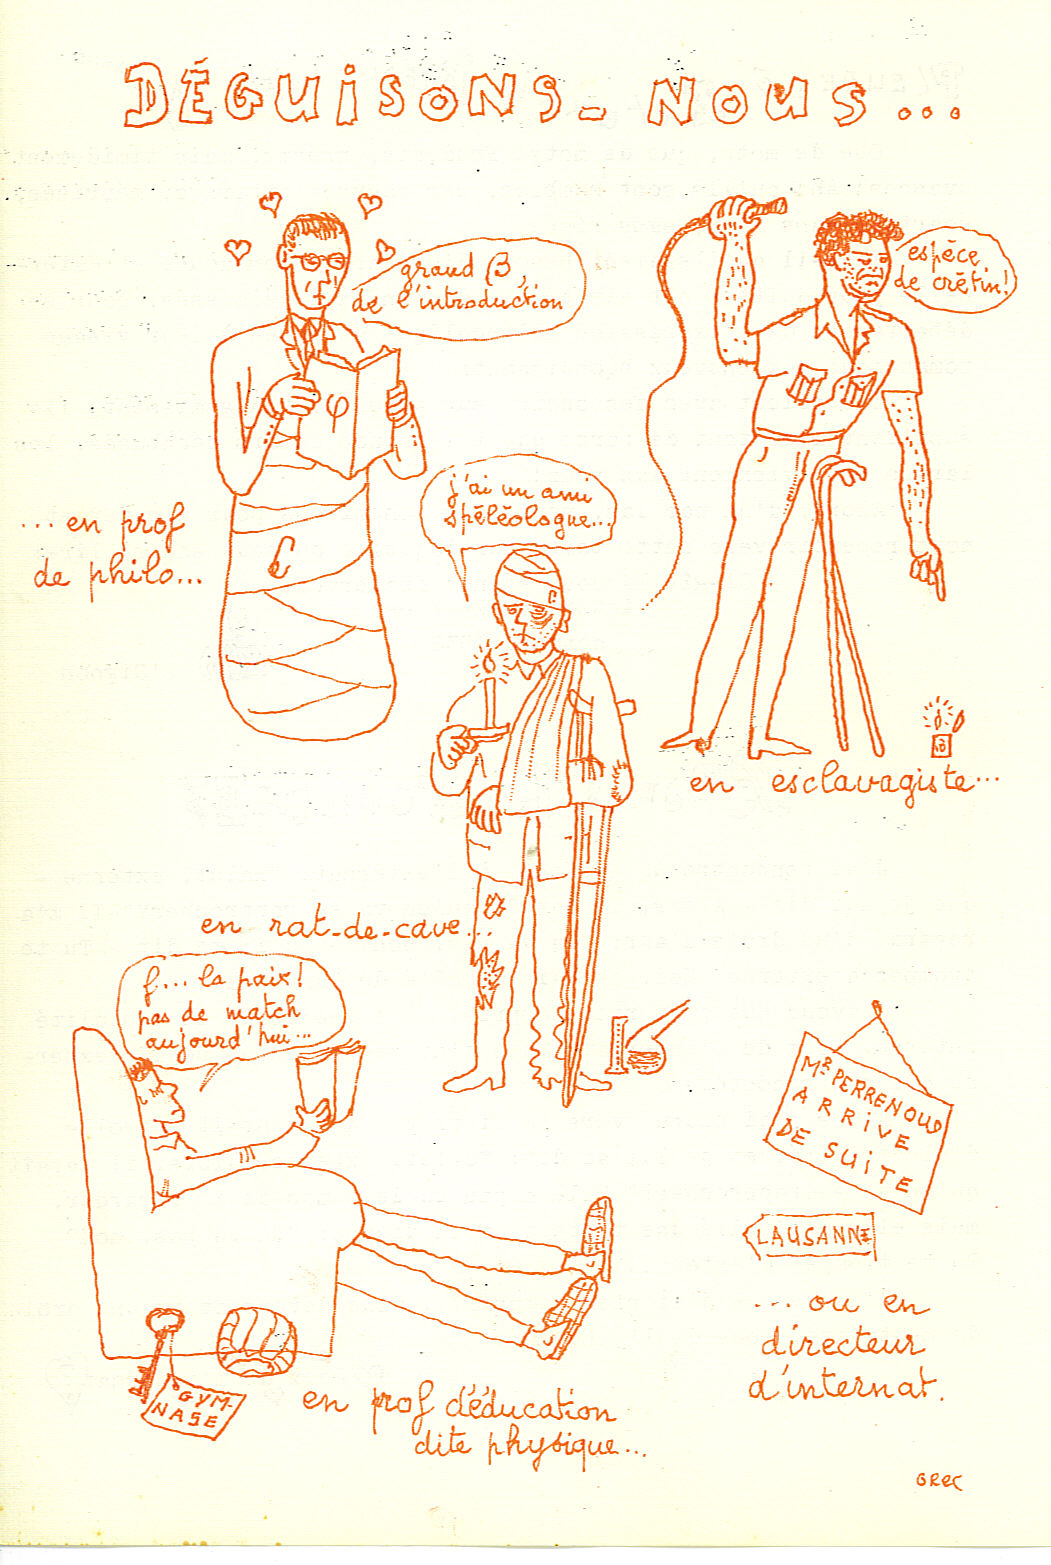 DÉGUISONS-NOUS...
grand β,
de l'introduction
φ
... en prof
de philo...
espèce
de crétin!
en esclavagiste...
j'ai un ami
spéléologue...
en rat-de-cave...
f... la paix!
pas de match
aujourd'hui...
GYM-
NASE
en prof d'éducation
dite physique...
MR PERRENOUD
ARRIVE
DE SUITE
LAUSANNE
... ou en
directeur
d'internat.
GREC